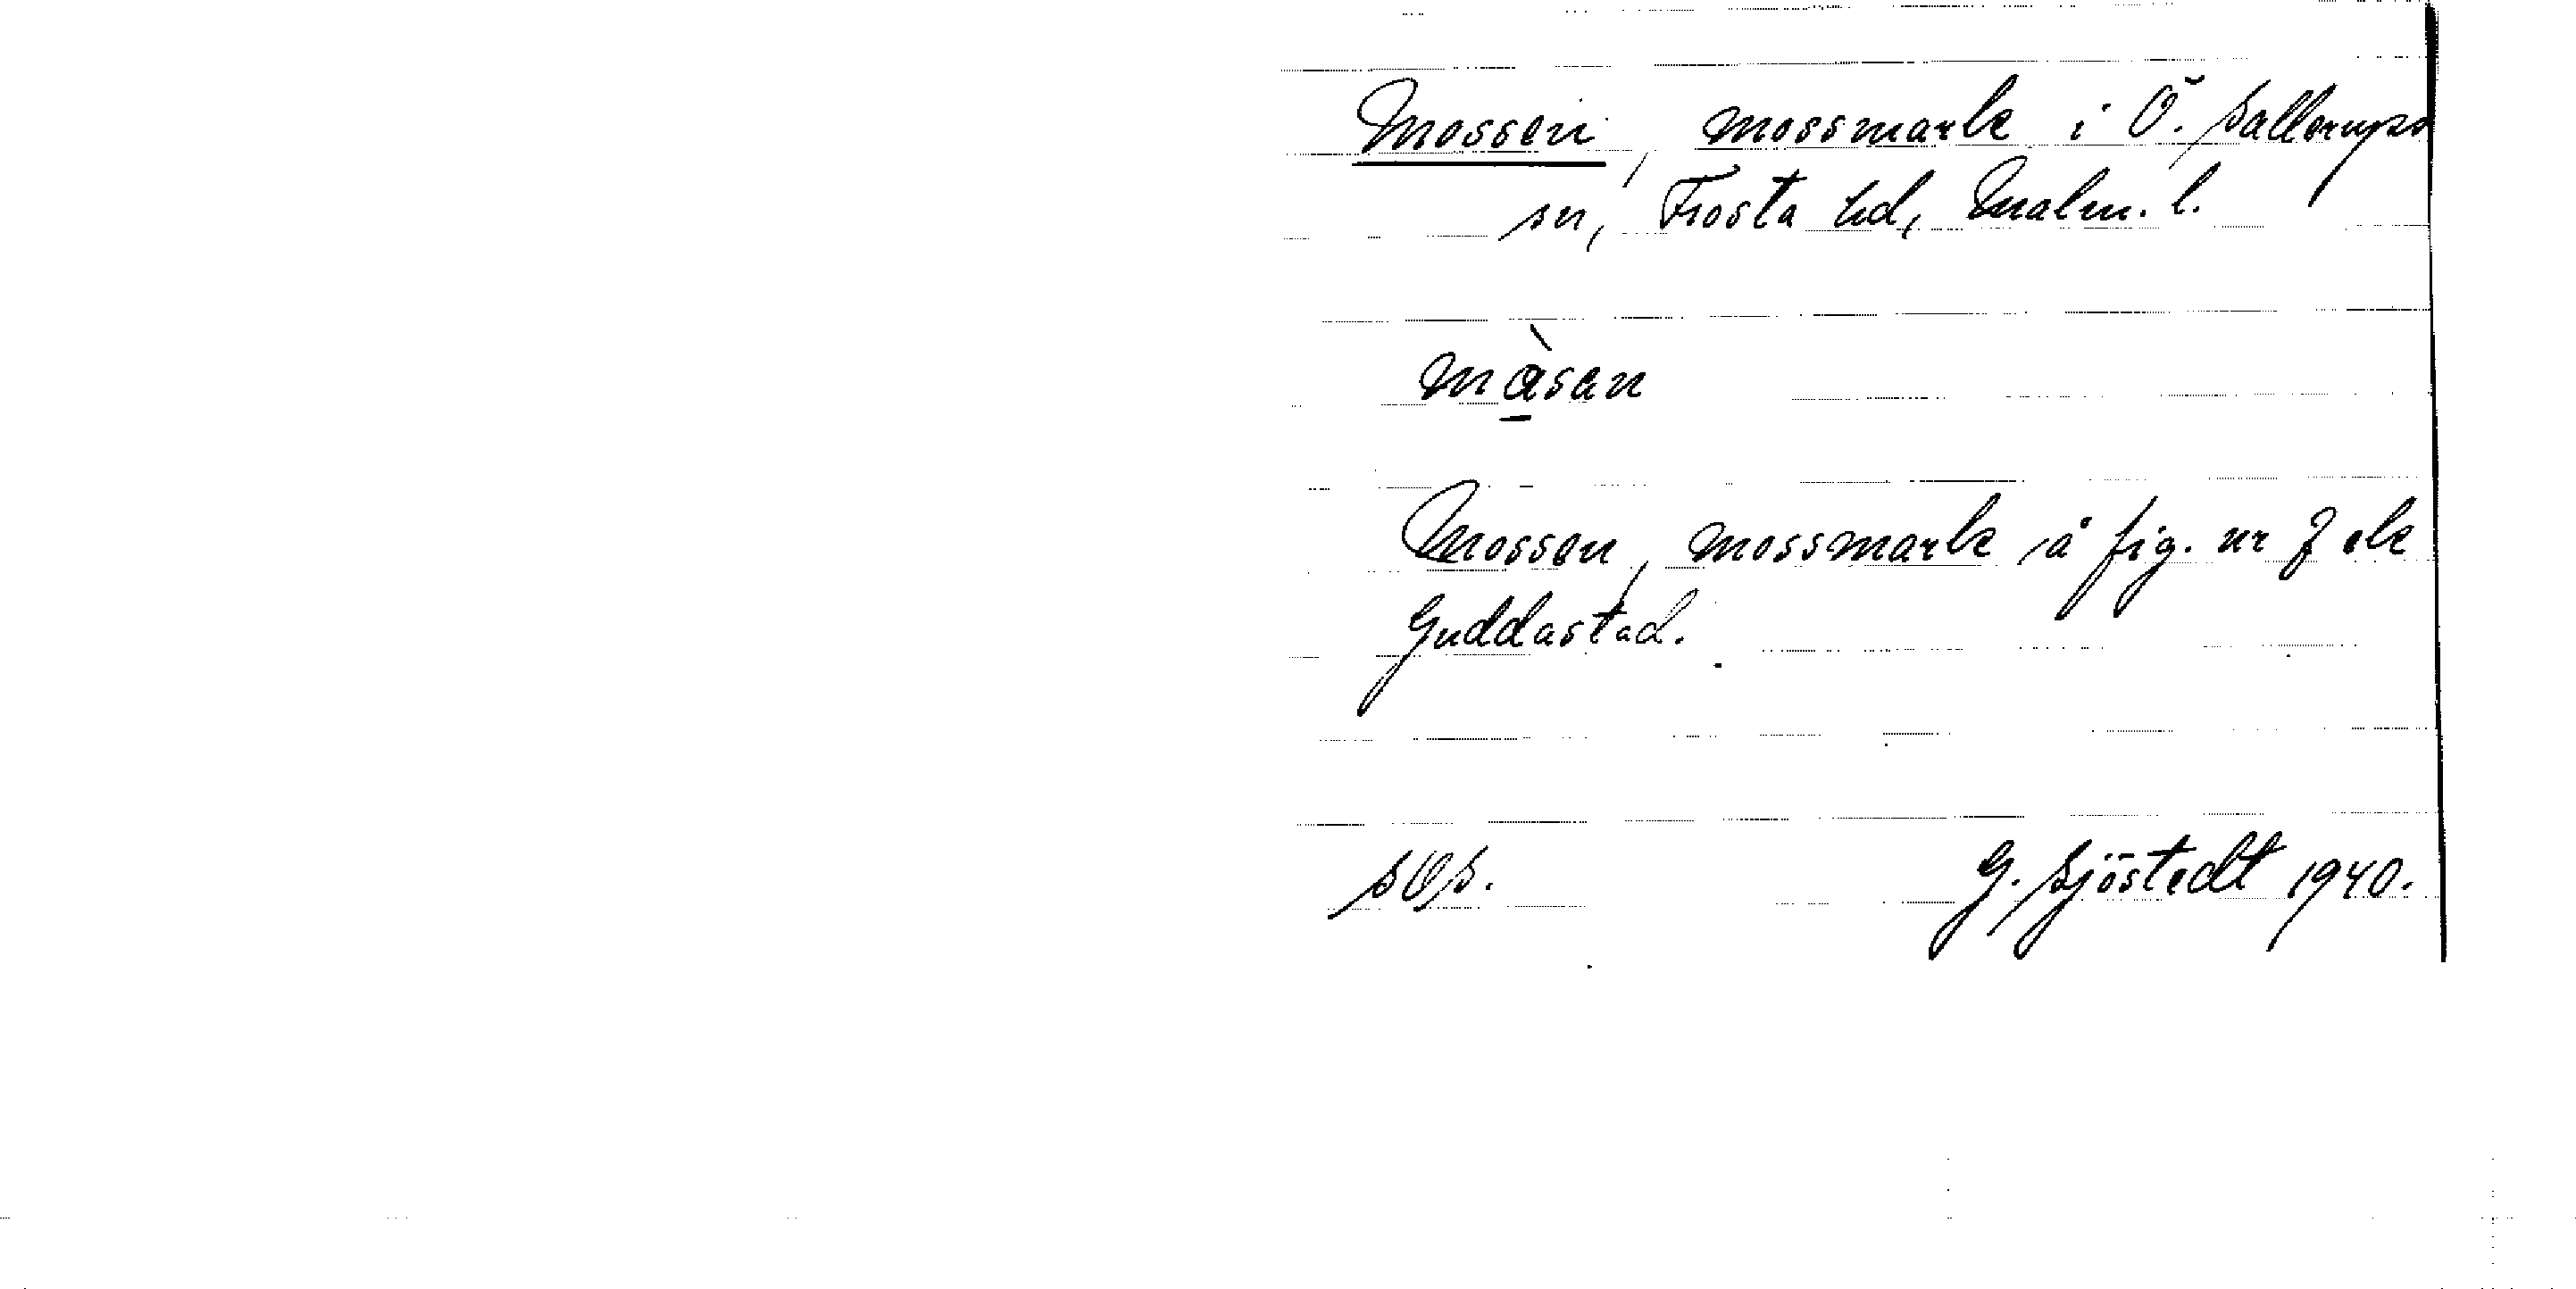 Mossen, mossmark i Ö. Sallerups
sn, Frosta hd, Malm. l.
màsan
Mossen, mossmark å fig. nr 7 ek
Guddastad.
SOS. G. Sjöstedt 1940.